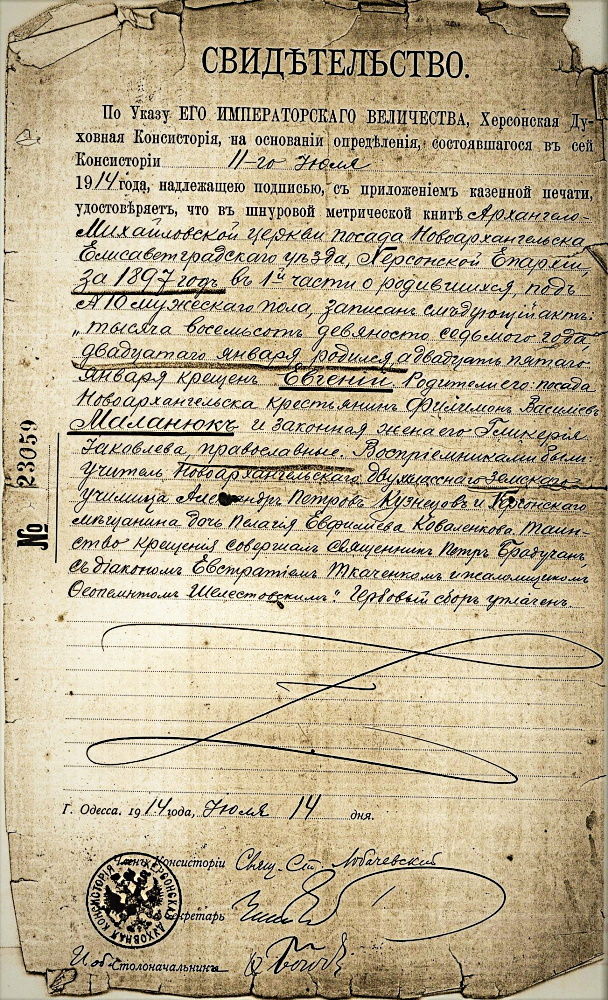 СВИДѢТЕЛЬСТВО.
По Указу ЕГО ИМПЕРАТОРСКАГО ВЕЛИЧЕСТВА, Херсонская Ду-
ховная Консисторія, на основаніи опредѣленія, состоявшагося въ сей
Консисторіи 11-го Іюля
1914 года, надлежащею подписью, съ приложеніемъ казенной печати,
удостовѣряетъ, что въ шнуровой метрической книгѣ Архангело-
Михайловской церкви посада Новоархангельска,
Елисаветградскаго уѣзда, Херсонской Епархіи,
за 1897 годъ, въ 1й части о родившихся, подъ
№ 10 мужескаго пола, записанъ слѣдующій актъ:
„тысяча восемьсотъ девяносто седьмого года
двадцатаго января родился, а двадцать пятаго
января крещенъ Евгеній. Родители его: посада
Новоархангельска крестьянинъ Филимонъ Васильевъ
Маланюкъ и законная жена его Гликерія
Іаковлева, православные. Воспріемниками были:
учитель Новоархангельскаго двухкласснаго земскаго
училища Александръ Петровъ Кузнецовъ и Херсонскаго
мѣщанина дочь Пелагія Евфиміева Коваленкова. Таин-
ство крещенія совершалъ священникъ Петръ Брадучанъ,
съ діакономъ Евстратіемъ Ткаченкомъ и псаломщикомъ
Ѳеопемптомъ Шелестовскимъ." Гербовый сборъ уплаченъ.
№ 23059
Г. Одесса. 1914 года, Іюля 14 дня.
Членъ Консисторіи Свящ. Ст. Лобачевскій
Секретарь
И. об. Столоначальника
ХЕРСОНСКАЯ ДУХОВНАЯ КОНСИСТОРІЯ